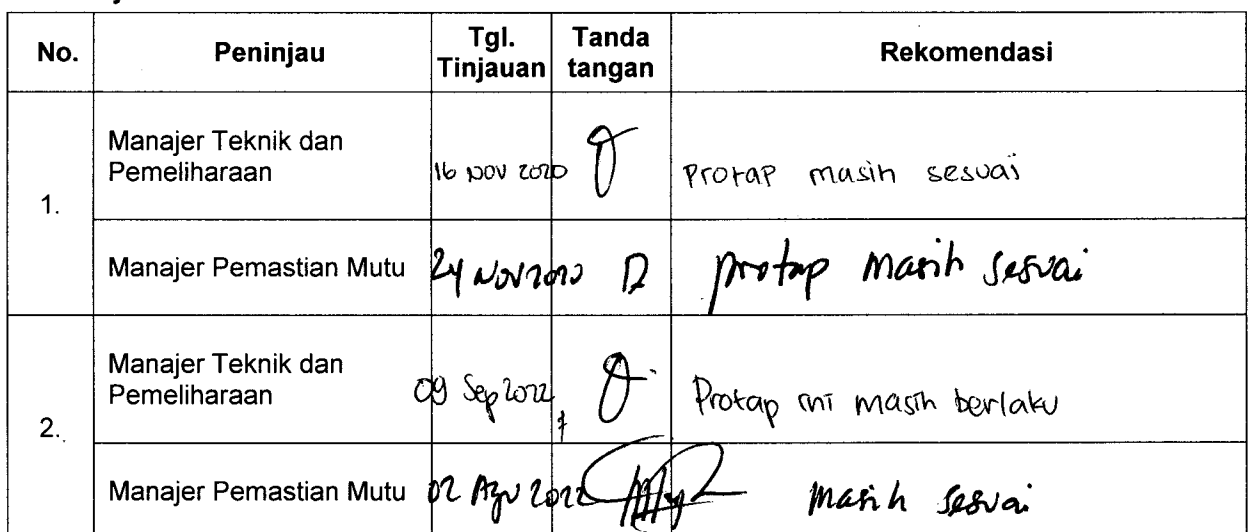 No. Peninjau Tgl. Tinjauan Tanda tangan Rekomendasi
1.
Manajer Teknik dan Pemeliharaan 16 NOV 2020 Protap masih sesuai
Manajer Pemastian Mutu 24 Nov 2020 protap masih sesuai
2.
Manajer Teknik dan Pemeliharaan 09 Sep 2022 Protap ini masih berlaku
Manajer Pemastian Mutu 02 Agu 2022 masih sesuai